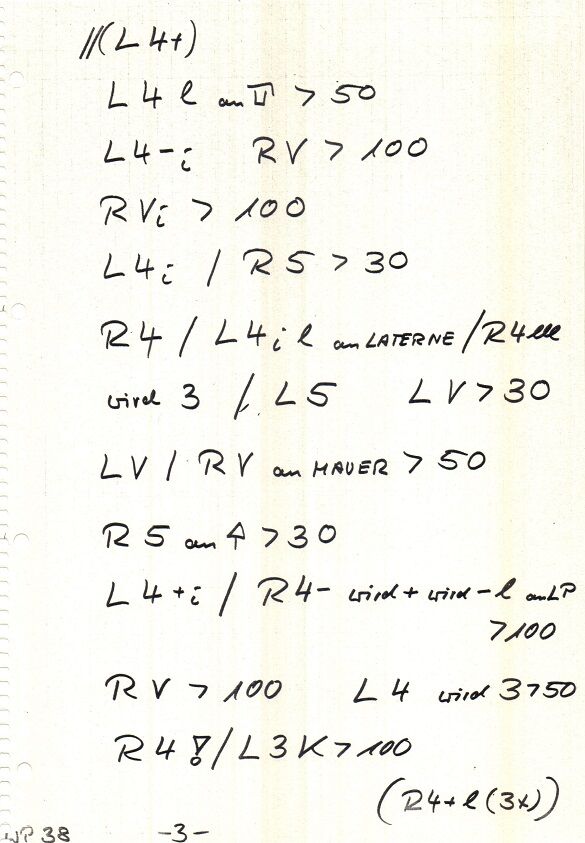 //(L 4+)
L 4 l an > 50
L4-i RV > 100
RVi > 100
L4i / R5 > 30
R4 / L4i l an LATERNE / R4lll
wird 3 / L5 LV > 30
LV / RV an MAUER > 50
R5 an ↑ > 30
L4+i / R4- wird + wird - l an LP
> 100
RV > 100 L4 wird 3 > 50
R4 ! / L3K > 100
(R4+l(3x))
WP 38 -3-